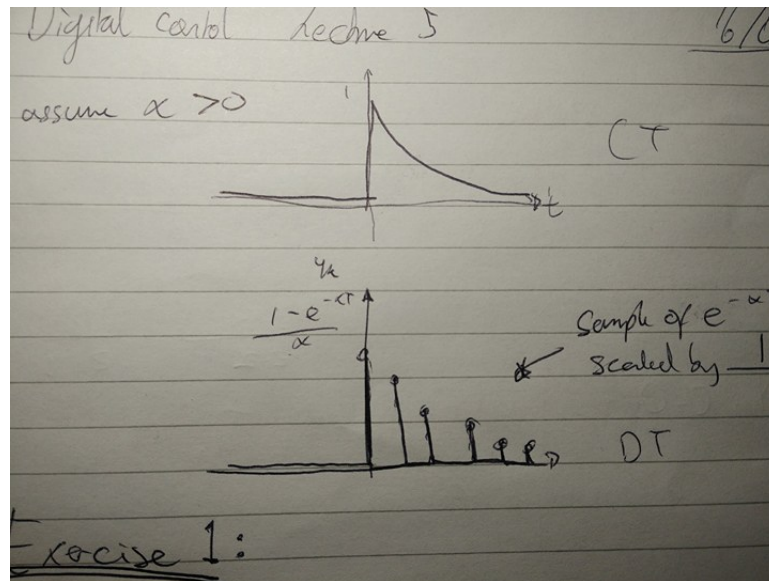 Digital control Lecture 5 6/
assume α > 0
1
CT
t
yk
1 - e^-αT
α
Sample of e^-α
scaled by 1
DT
Exercise 1: